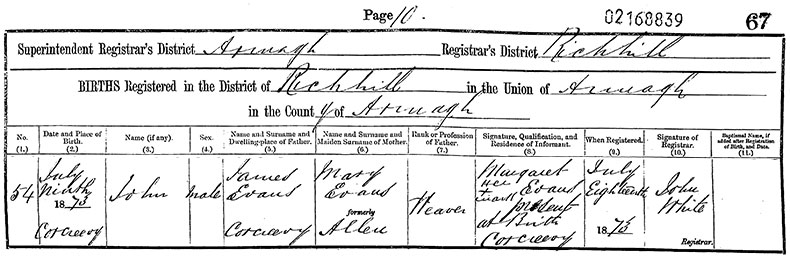 Page 10. 02168839 67
Superintendent Registrar's District Armagh Registrar's District Richhill
BIRTHS Registered in the District of Richhill in the Union of Armagh
in the County of Armagh
No. (1.) Date and Place of Birth. (2.) Name (if any). (3.) Sex. (4.) Name and Surname and Dwelling-place of Father. (5.) Name and Surname and Maiden Surname of Mother. (6.) Rank or Profession of Father. (7.) Signature, Qualification, and Residence of Informant. (8.) When Registered. (9.) Signature of Registrar. (10.) Baptismal Name, if added after Registration of Birth, and Date. (11.)
54
July
Ninth
1873
Corcreevy
John
Male
James
Evans
Corcreevy
Mary
Evans
formerly
Allen
Weaver
Margaret
Evans
her
mark
Present
at Birth
Corcreevy
July
Eighteenth
1873
John
White
Registrar.